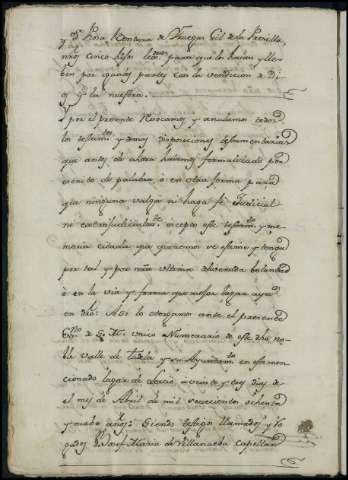 y Dª Rosa Ventura de Thegan Gil de la Presilla,
mis cinco hijos legmos para que lo hayan y lle-
ben por iguales partes con la vendicion de Di-
os y la nuestra.
Y por el presente Revocamos y anulamos todos
los testamtos y demas disposiciones testamentarias
que antes de ahora havemos formalizado por
escrito de palabra, o en otra forma para
que ninguna valga ni haga fe Judicial
ni extrajudicialmte excepto este testamto y me-
moria citada que queremos se estime y tenga
por tal y por nra ultima deliverada voluntad
o en la via y forma que mejor lugar aya
en dro: Asi lo otorgamos ante el presente
Essno de S. M. unico Numerario de este dho no-
ble valle de y su Ayuntamto en este men-
cionado lugar de a veinte y seis dias de
el mes de Abril de mil setecientos ochenta
y nuebe años: Siendo testigos llamados y Ro-
gados Dn Josef Maria de Villanueba Capellan